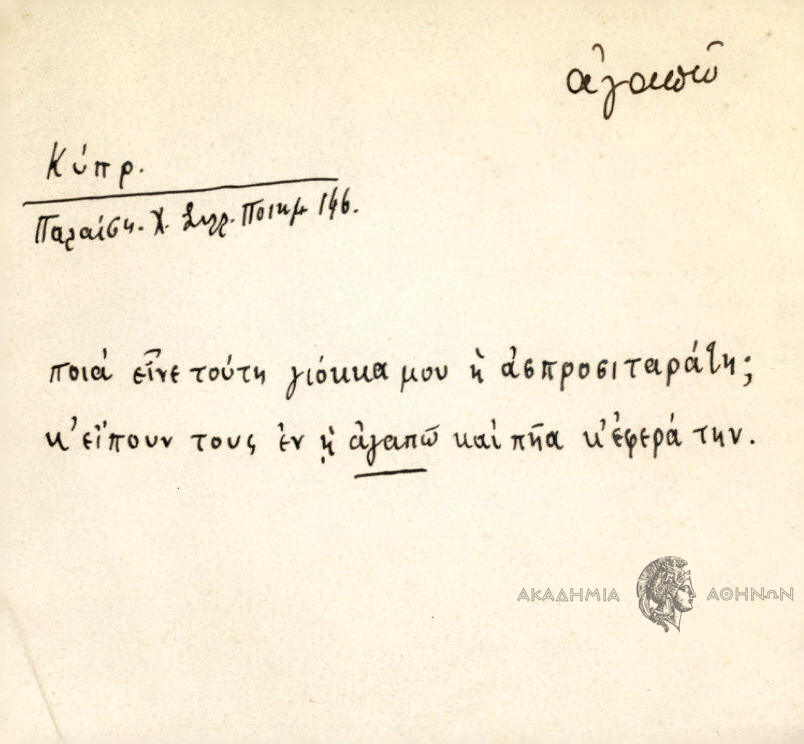 ἀγαπῶ
Κύπρ.
Παλαίση. Χ. Συλλ. Ποιημ 146.
ποιὰ εἶνε τούτη γιόκκα μου ἡ ἀσπροσιταράτη;
κ’ εἴπουν τους ἐν ᾑ ἀγαπῶ καὶ πῆα κ’ ἐφερά την.
ΑΚΑΔΗΜΙΑ ΑΘΗΝΩΝ